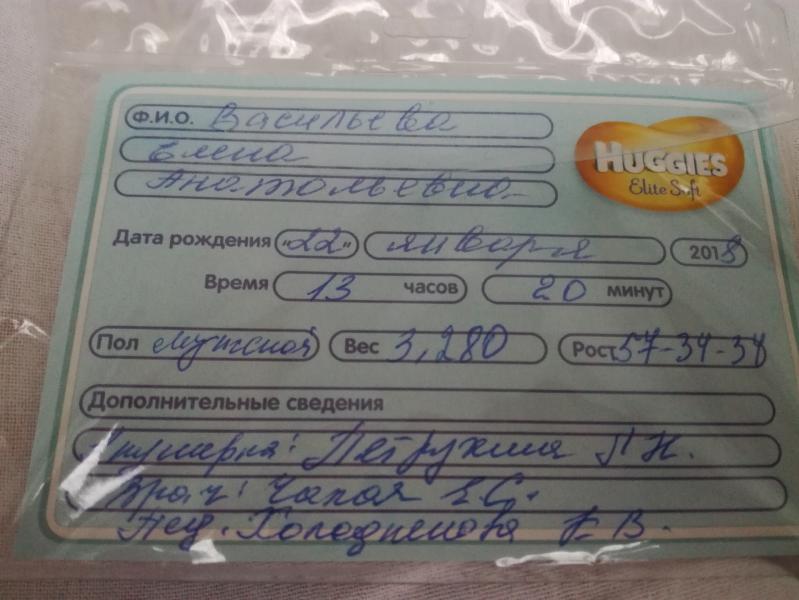 Ф.И.О. Васильева
Елена
Анатольевна
HUGGIES
Elite Soft
Дата рождения «22» января 2018
Время 13 часов 20 минут
Пол мужской Вес 3,280 Рост 57-34-34
Дополнительные сведения
Акушерка: Петрухина Л Н.
Врач: Чапая Е.С.
Пед. Холодненова Е В.